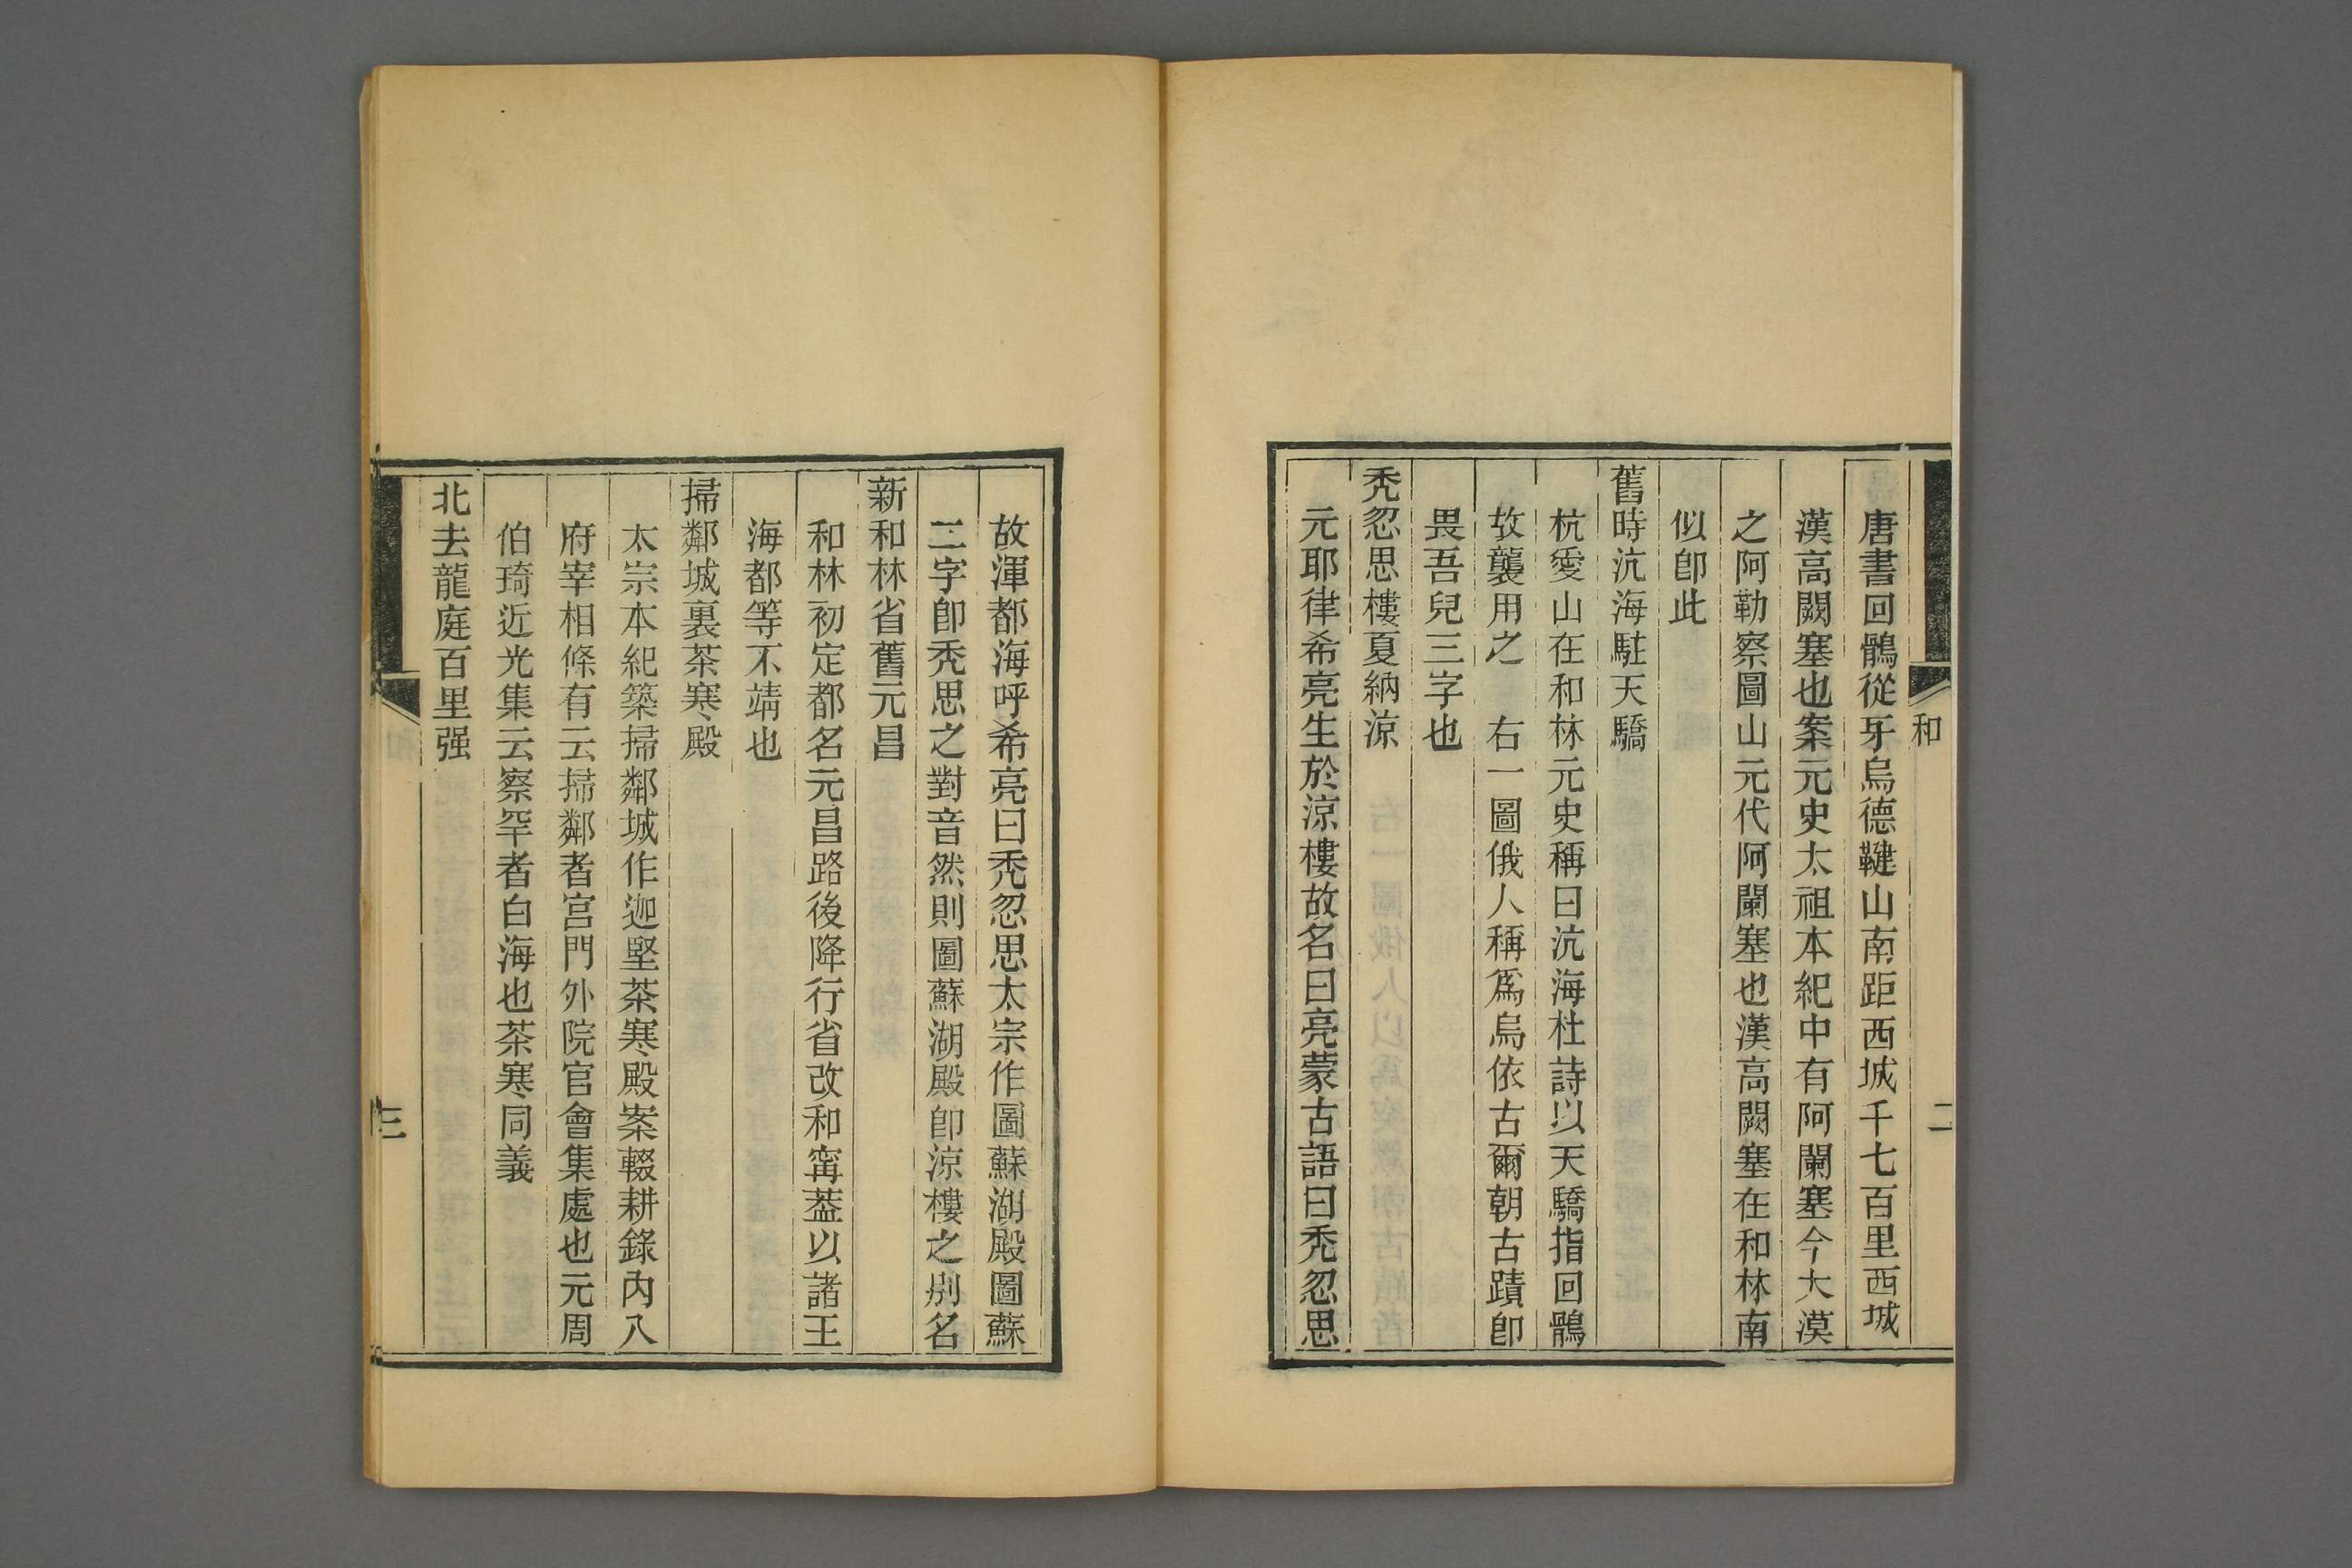 和
二
唐書回鶻從牙烏德鞬山南距西城千七百里西城
漢高闕塞也案元史太祖本紀中有阿闌塞今大漠
之阿勒察圖山元代阿闌塞也漢高闕塞在和林南
似卽此
舊時沆海駐天驕
杭愛山在和林元史稱曰沆海杜詩以天驕指回鶻
故襲用之　右一圖俄人稱爲烏依古爾朝古蹟卽
畏吾兒三字也
禿忽思樓夏納涼
元耶律希亮生於涼樓故名曰亮蒙古語曰禿忽思
故渾都海呼希亮曰禿忽思太宗作圖蘇湖殿圖蘇
二字卽禿思之對音然則圖蘇湖殿卽涼樓之別名
新和林省舊元昌
和林初定都名元昌路後降行省改和寗葢以諸王
海都等不靖也
掃鄰城裏茶寒殿
太宗本紀築掃鄰城作迦堅茶寒殿案輟耕錄內八
府宰相條有云掃鄰者宮門外院官會集處也元周
伯琦近光集云察罕者白海也茶寒同義
北去龍庭百里强
三